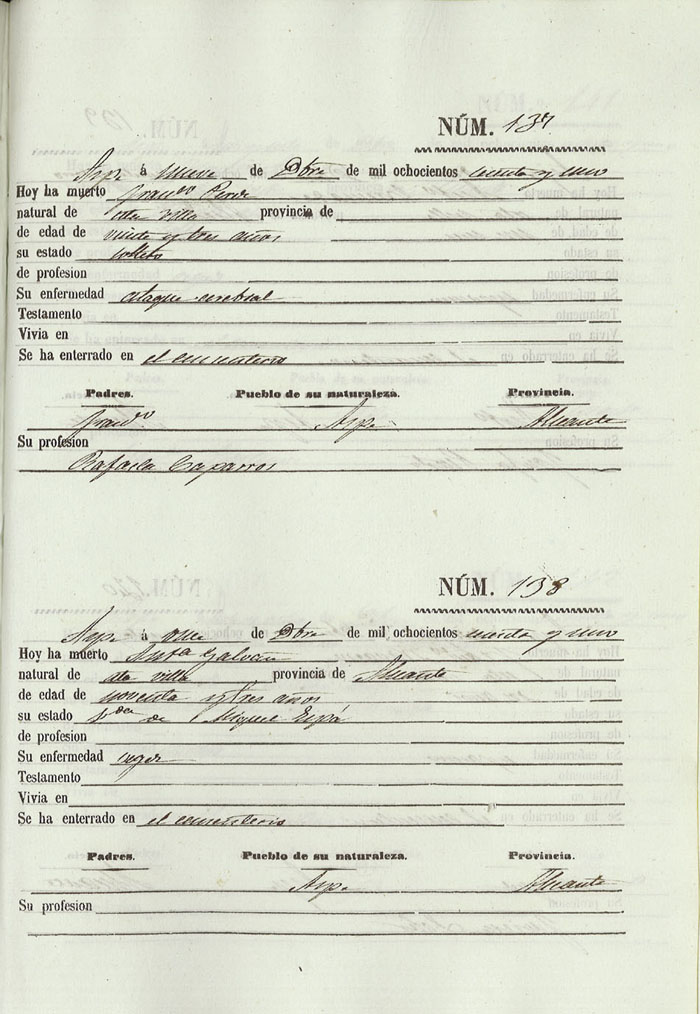 NÚM. 137
Aspe á nueve de Dbre de mil ochocientos cuarenta y uno
Hoy ha muerto Franco
natural de esta villa provincia de
de edad de veinte y tres años
su estado soltero
de profesion
Su enfermedad ataque cerebral
Testamento
Vivia en
Se ha enterrado en el cementerio
Padres. Pueblo de su naturaleza. Provincia.
Franco Aspe Alicante
Su profesion
Rafaela Caparros
NÚM. 138
Aspe á de Dbre de mil ochocientos cuarenta y uno
Hoy ha muerto Anta Galvañ
natural de esta villa provincia de Alicante
de edad de noventa y tres años
su estado Vda de Miguel
de profesion
Su enfermedad vejez
Testamento
Vivia en
Se ha enterrado en el cementerio
Padres. Pueblo de su naturaleza. Provincia.
Aspe Alicante
Su profesion